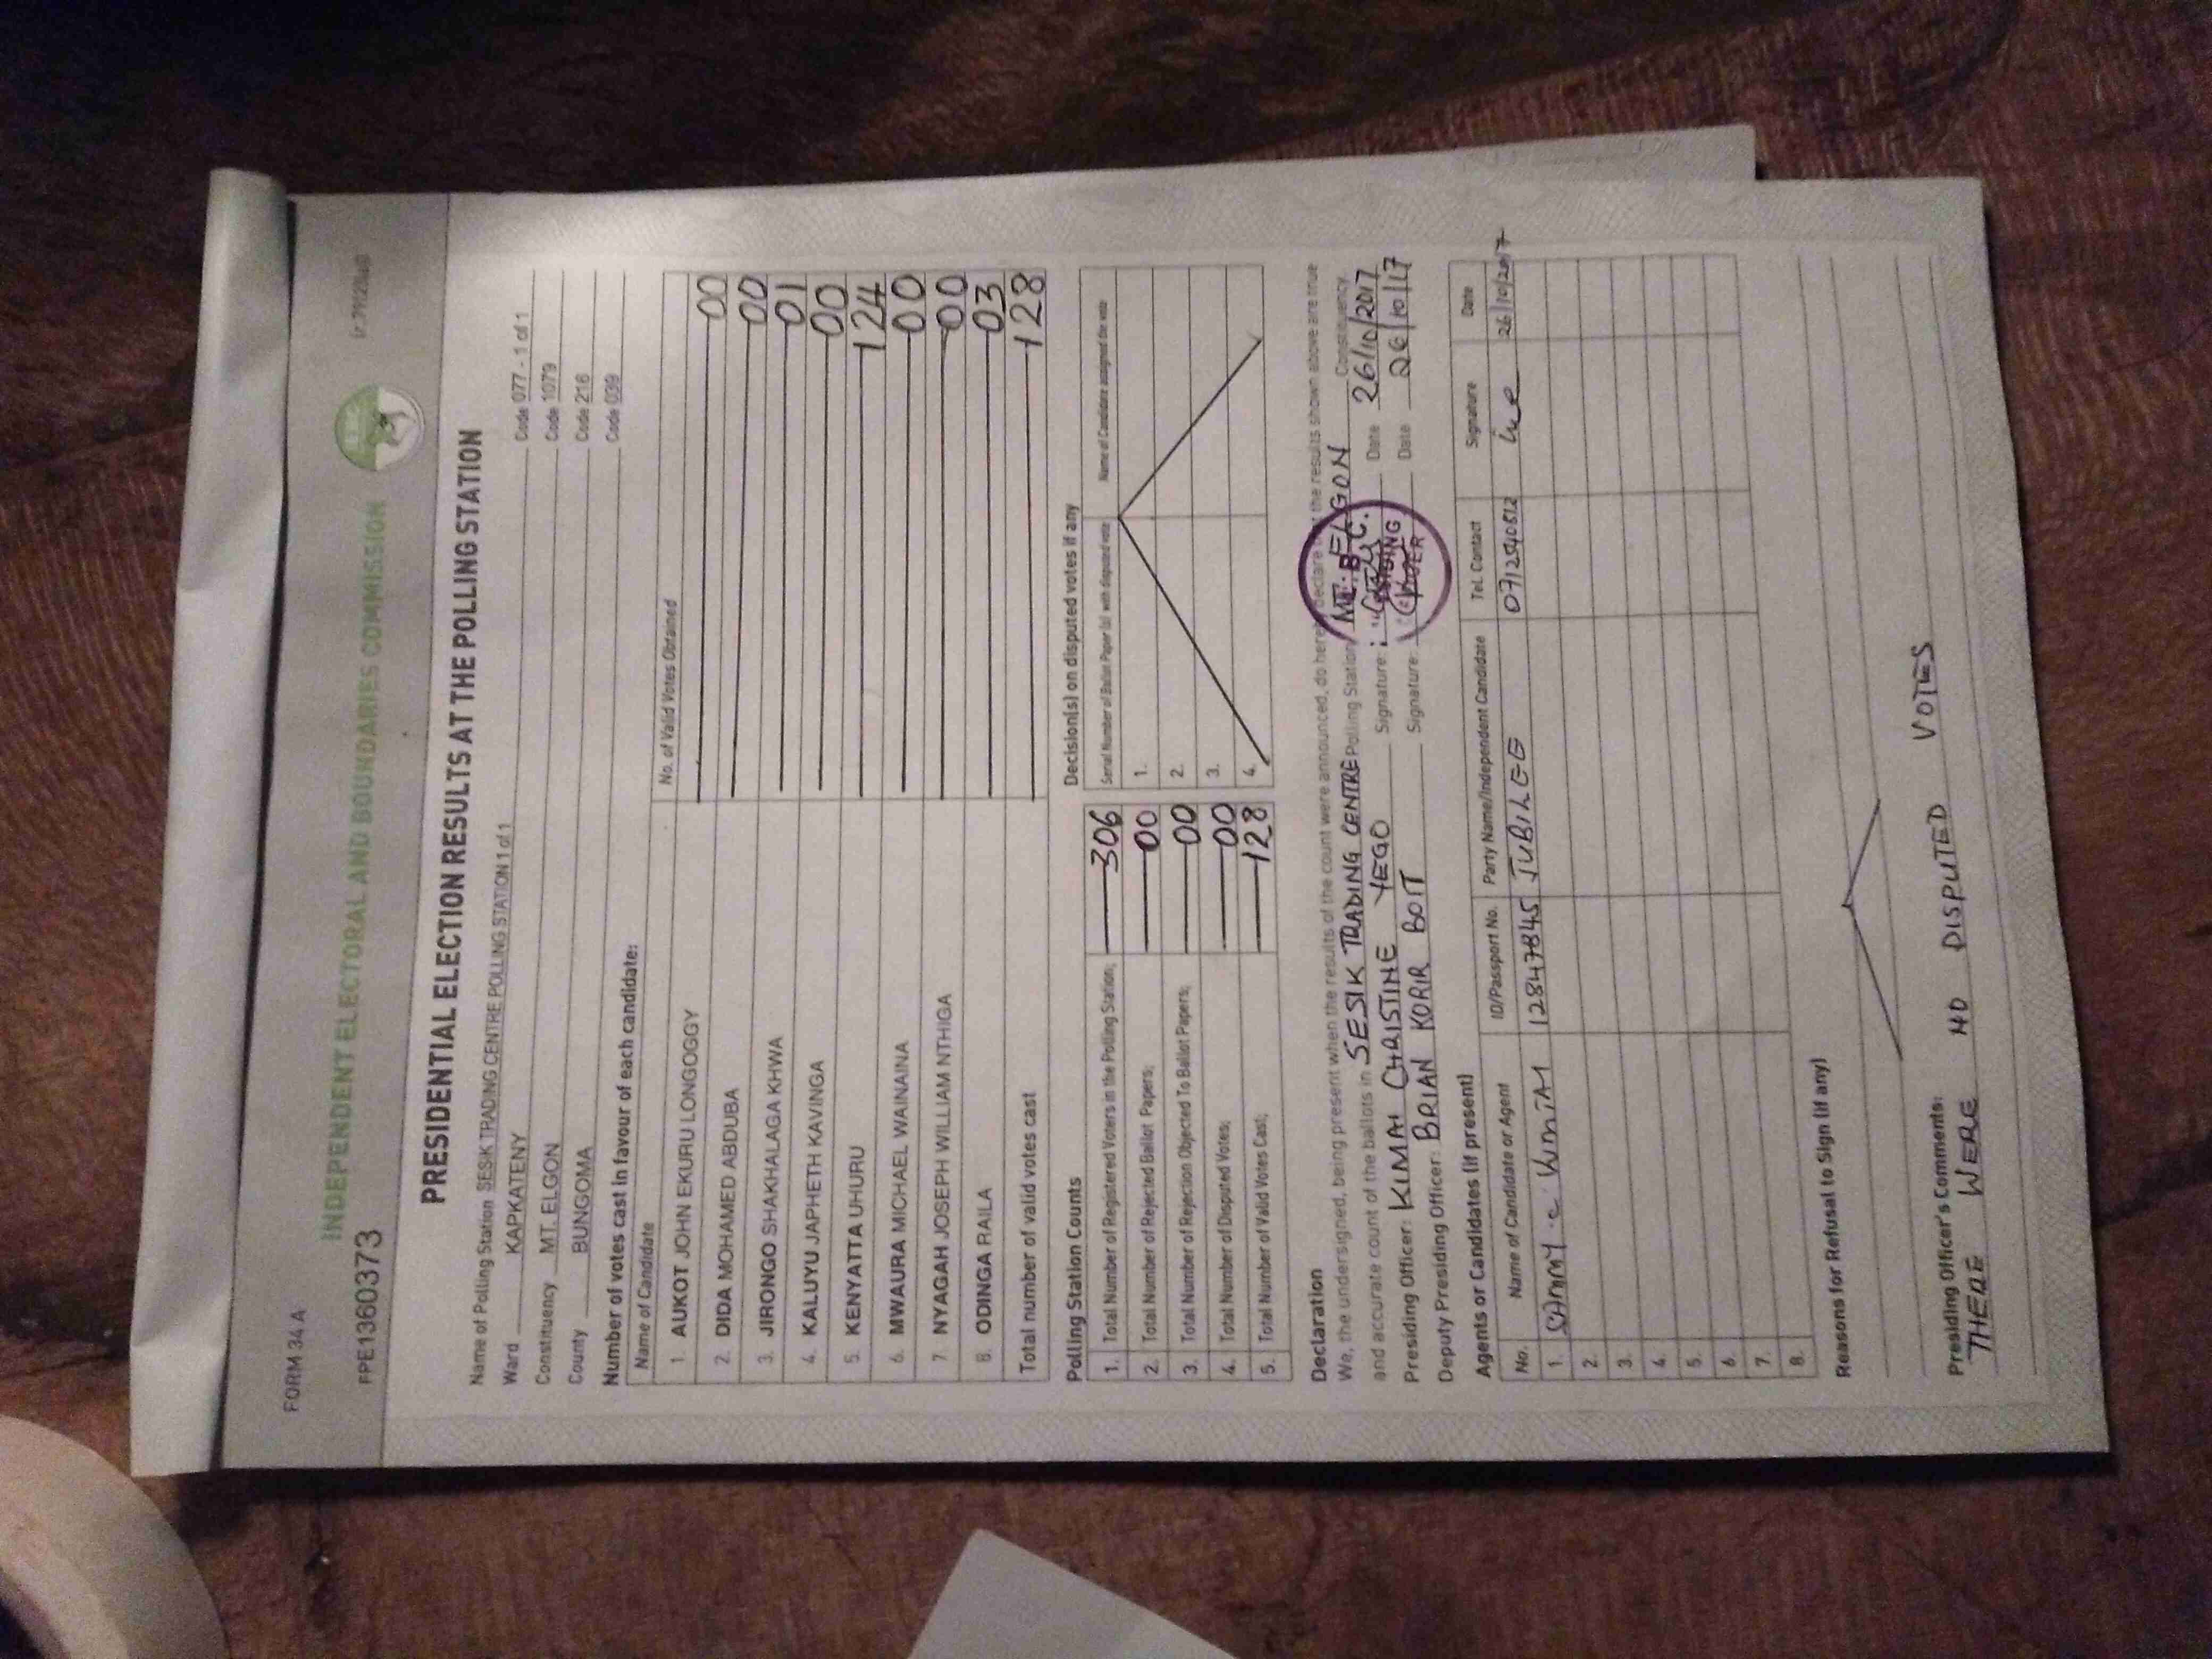 FORM 34 A
INDEPENDENT ELECTORAL AND BOUNDARIES COMMISSION
FPE1360373
PRESIDENTIAL ELECTION RESULTS AT THE POLLING STATION
Name of Polling Station SESIK TRADING CENTRE POLLING STATION 1 of 1 Code 077 - 1 of 1
Ward KAPKATENY Code 1079
Constituency MT. ELGON Code 216
County BUNGOMA Code 039
Number of votes cast in favour of each candidate:
Name of Candidate No. of Valid Votes Obtained
1. AUKOT JOHN EKURU LONGOGGY 00
2. DIDA MOHAMED ABDUBA 00
3. JIRONGO SHAKHALAGA KHWA 01
4. KALUYU JAPHETH KAVINGA 00
5. KENYATTA UHURU 124
6. MWAURA MICHAEL WAINAINA 00
7. NYAGAH JOSEPH WILLIAM NTHIGA 00
8. ODINGA RAILA 03
Total number of valid votes cast 128
Polling Station Counts
1. Total Number of Registered Voters in the Polling Station; 306
2. Total Number of Rejected Ballot Papers; 00
3. Total Number of Rejection Objected To Ballot Papers; 00
4. Total Number of Disputed Votes; 00
5. Total Number of Valid Votes Cast; 128
Decision(s) on disputed votes if any
Serial Number of Ballot Paper (s) with disputed vote Name of Candidate assigned the vote
1.
2.
3.
4.
Declaration
We, the undersigned, being present when the results of the count were announced, do hereby declare that the results shown above are true
and accurate count of the ballots in SESIK TRADING CENTRE Polling Station MT. ELGON Constituency.
Presiding Officer: KIMAI CHRISTINE YEGO Signature: Date 26/10/2017
Deputy Presiding Officer: BRIAN KORIR BOIT Signature: Date 26/10/17
Agents or Candidates (if present)
No. Name of Candidate or Agent ID/Passport No. Party Name/Independent Candidate Tel. Contact Signature Date
1. SAMMY C 12847845 JUBILEE 0712540512 26/10/2017
2.
3.
4.
5.
6.
7.
8.
Reasons for Refusal to Sign (if any)
Presiding Officer's Comments:
THERE WERE NO DISPUTED VOTES